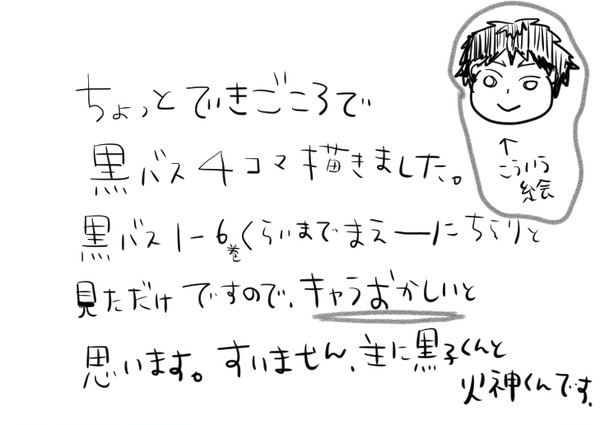 ちょっとでいきごころで
黒バス4コマ描きました。
黒バス1-6巻くらいまでまえーにちらりと
見ただけですので、キャラおかしいと
思います。すいません、主に黒子くんと
火神くんです。
↑
こういう
絵